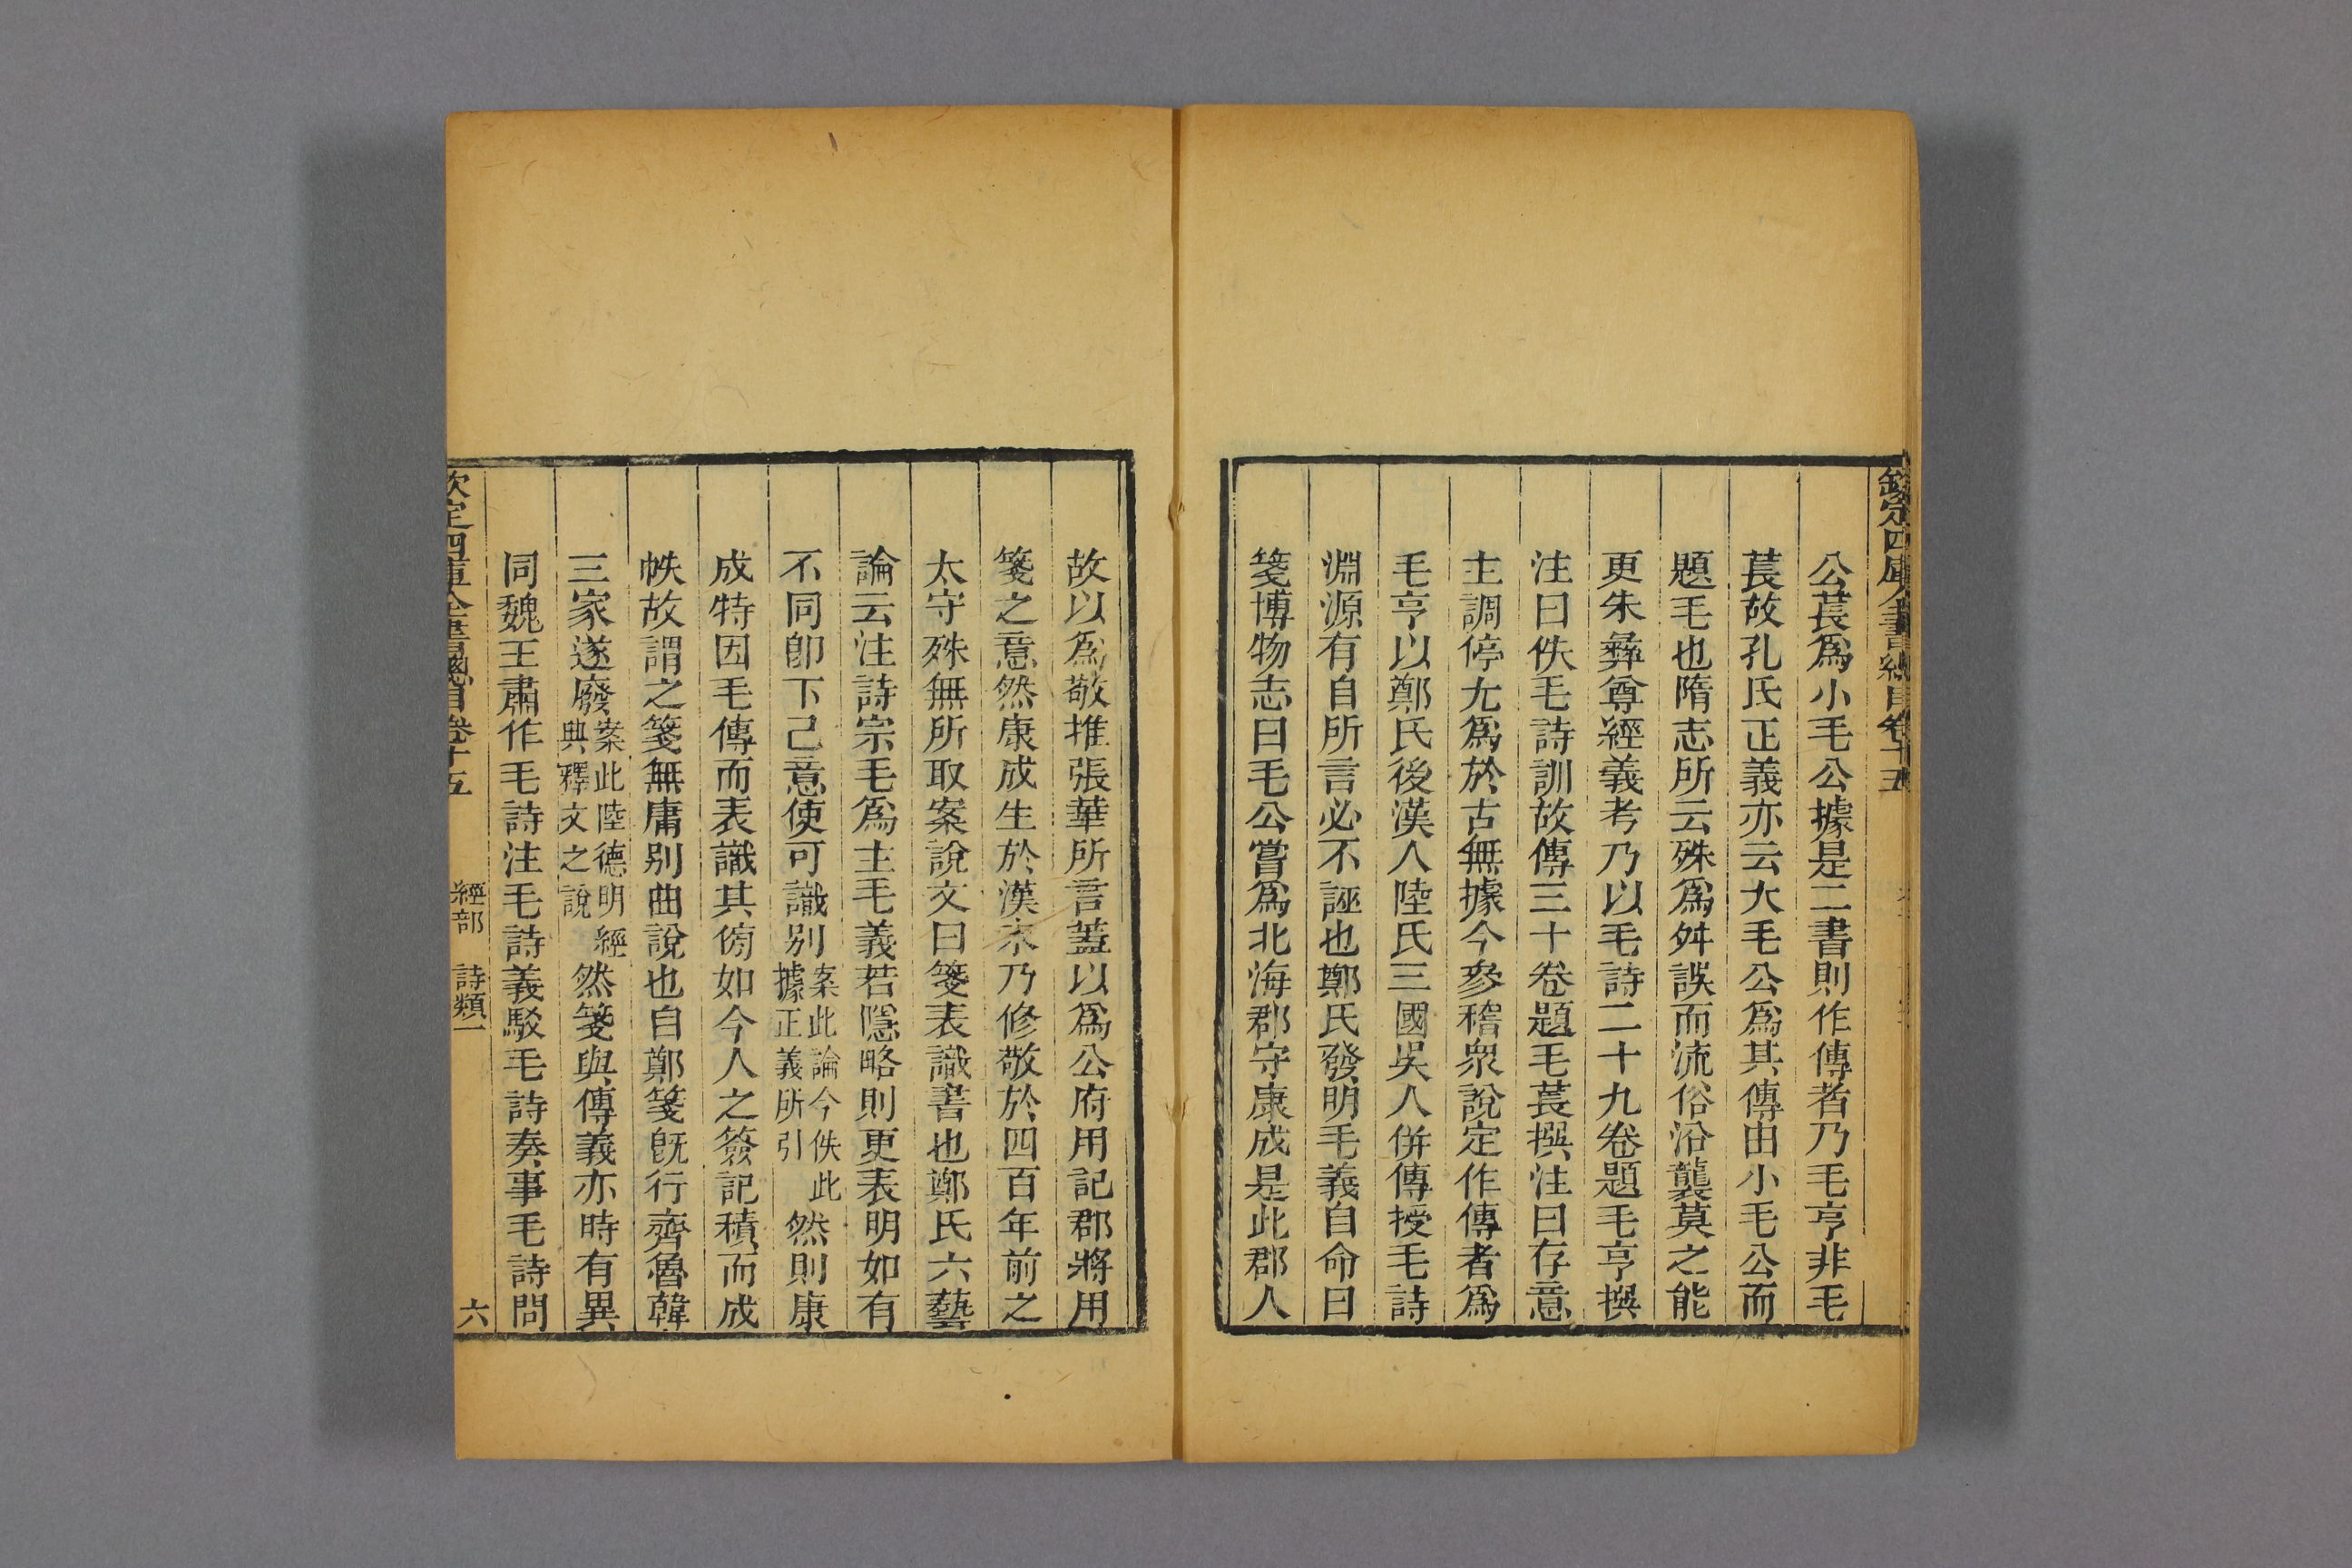 欽定四庫全書總目卷十五
公萇爲小毛公據是二書則作傳者乃毛亨非毛
萇故孔氏正義亦云大毛公爲其傳由小毛公而
題毛也隋志所云殊爲舛誤而流俗沿襲莫之能
更朱彝尊經義考乃以毛詩二十九卷題毛亨撰
注曰佚毛詩訓故傳三十卷題毛萇撰注曰存意
主調停尤爲於古無據今參稽衆說定作傳者爲
毛亨以鄭氏後漢人陸氏三國吳人併傳授毛詩
淵源有自所言必不誣也鄭氏發明毛義自命曰
箋博物志曰毛公嘗爲北海郡守康成是此郡人
故以爲敬推張華所言蓋以爲公府用記郡將用
箋之意然康成生於漢末乃修敬於四百年前之
太守殊無所取案說文曰箋表識書也鄭氏六藝
論云注詩宗毛爲主毛義若隱略則更表明如有
不同卽下己意使可識别案此論今佚此據正義所引然則康
成特因毛傳而表識其傍如今人之簽記積而成
帙故謂之箋無庸别曲說也自鄭箋旣行齊魯韓
三家遂廢案此陸德明經典釋文之說然箋與傳義亦時有異
同魏王肅作毛詩注毛詩義駁毛詩奏事毛詩問
欽定四庫全書總目卷十五 經部 詩類一 六